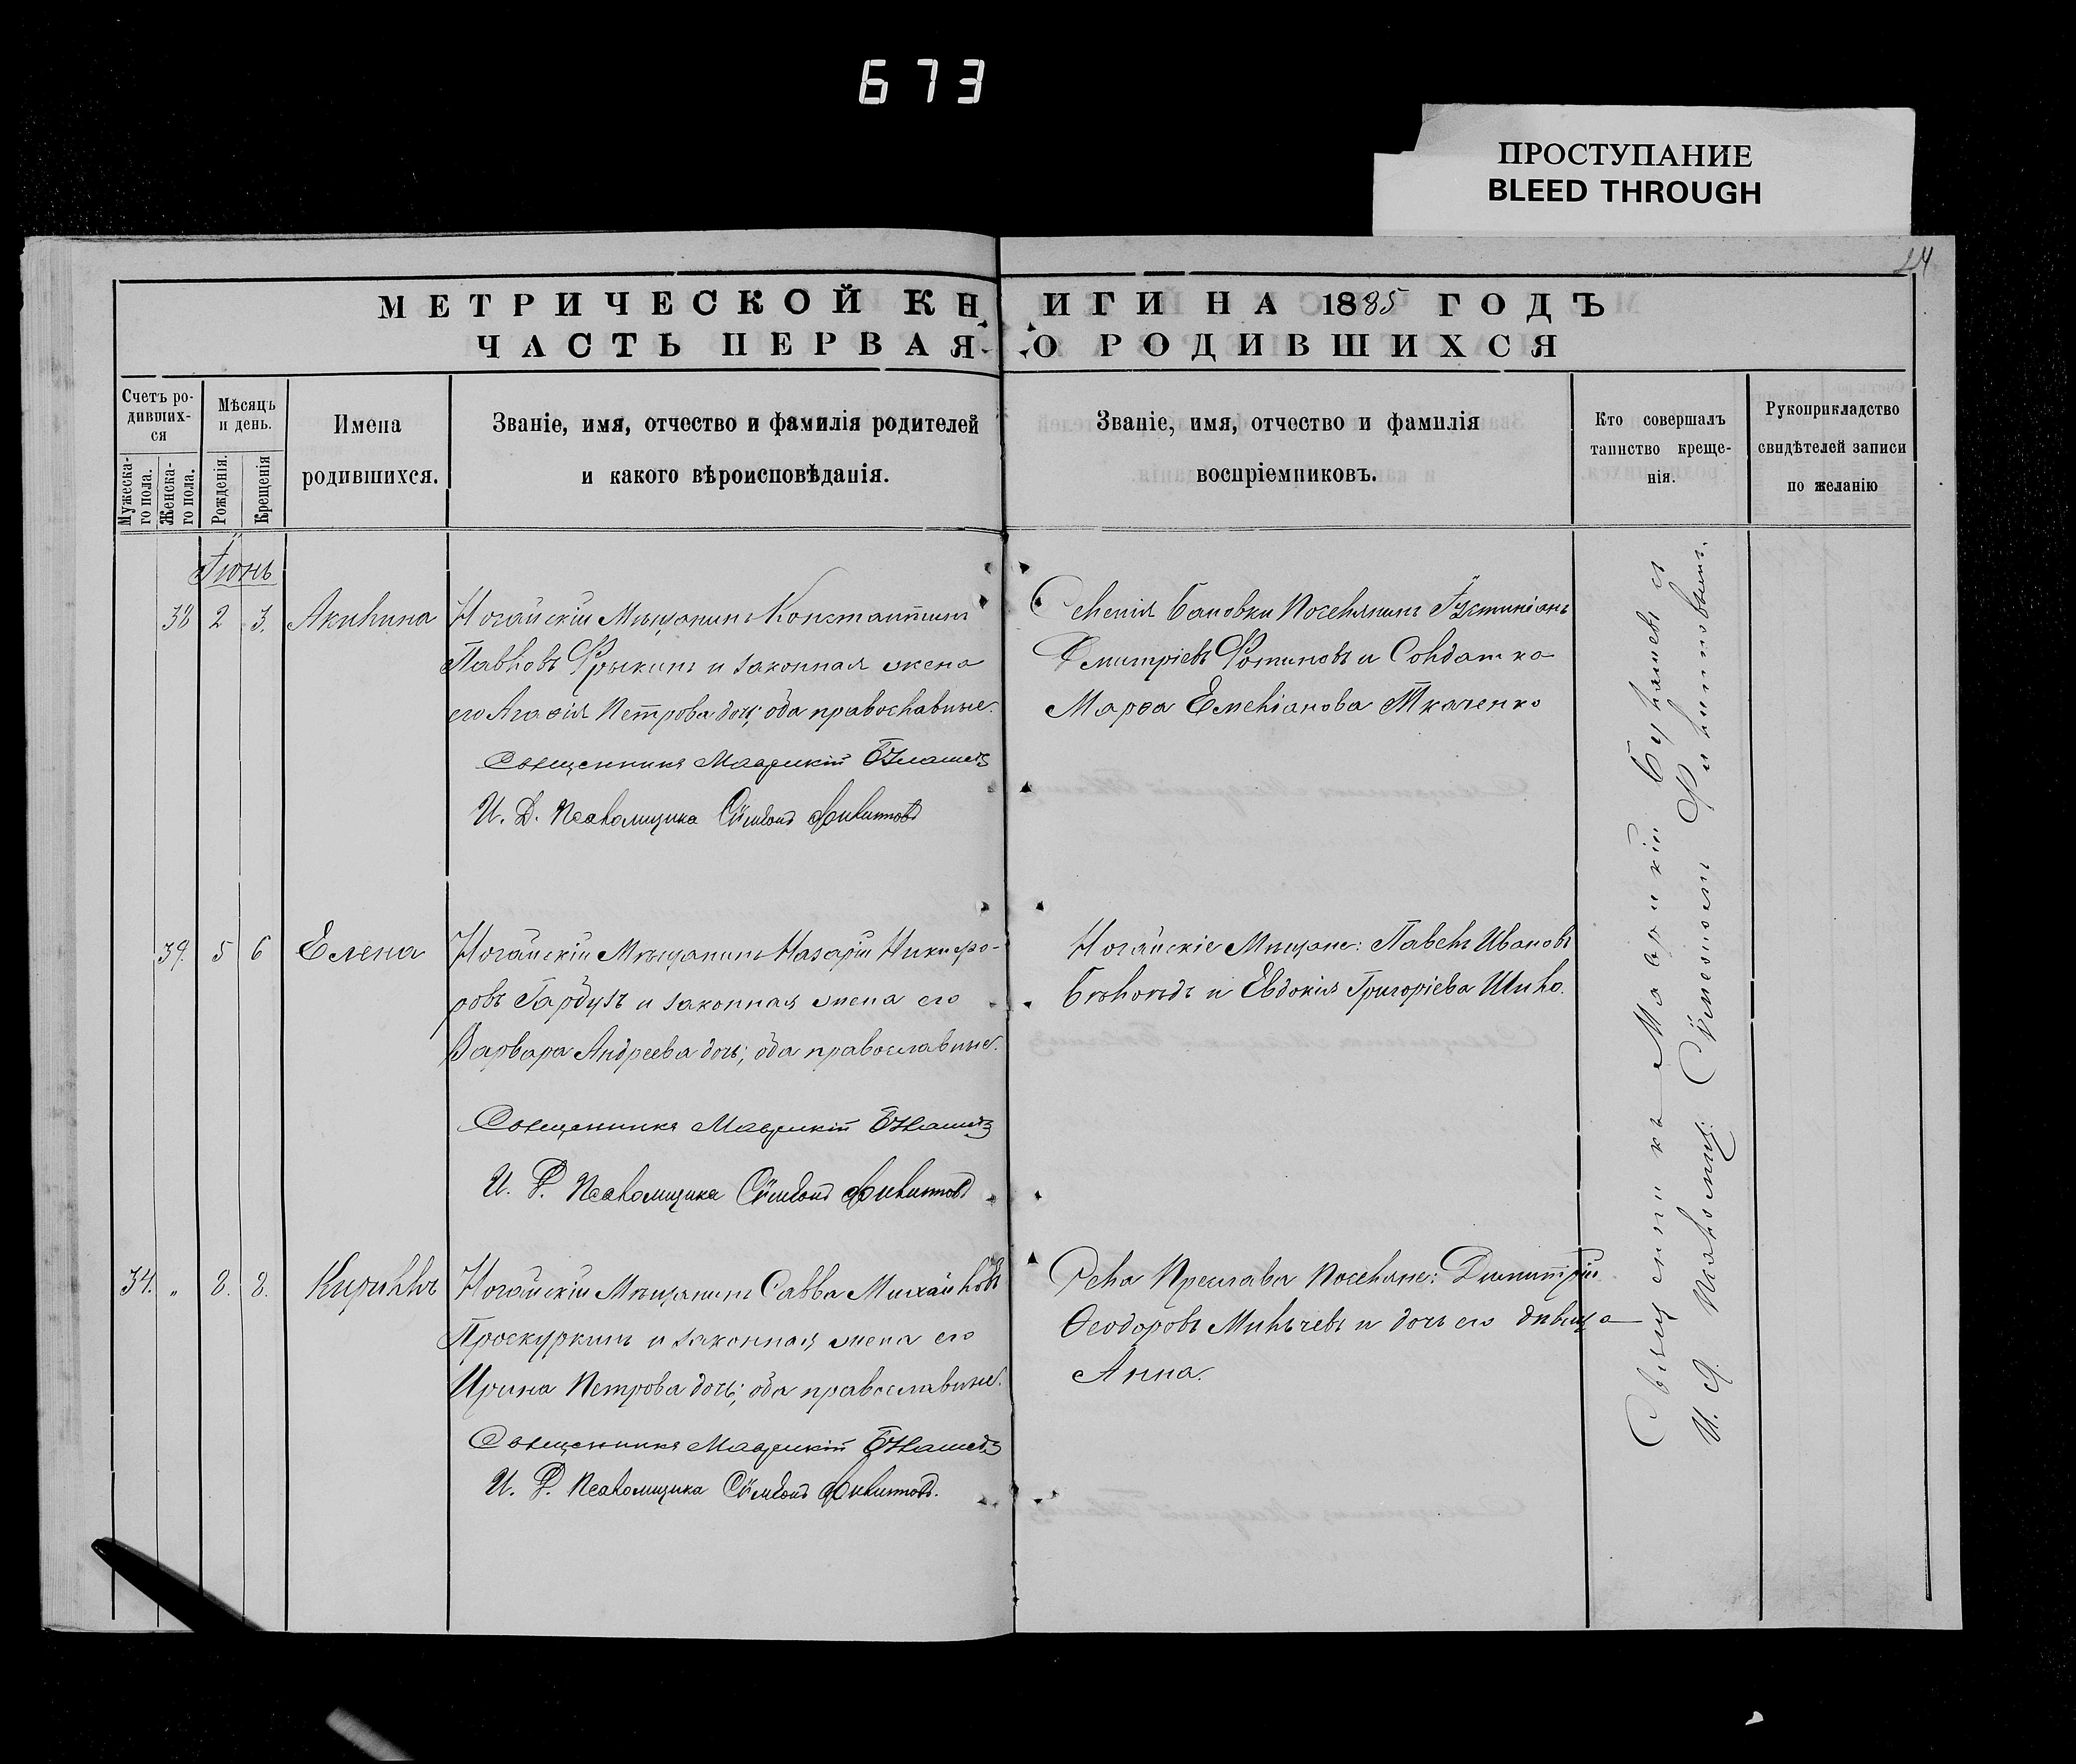 673
ПРОСТУПАНИЕ
BLEED THROUGH
МЕТРИЧЕСКОЙ КНИГИ НА 1885 ГОДЪ
ЧАСТЬ ПЕРВАЯ О РОДИВШИХСЯ
Счетъ ро-
дивших-
ся
Мужеска-
го пола.
Женска-
го пола.
Мѣсяцъ
и день.
Рожденія.
Крещенія
Имена
родившихся.
Званіе, имя, отчество и фамилія родителей
и какого вѣроисповѣданія.
Званіе, имя, отчество и фамилія
воспріемниковъ.
Кто совершалъ
таинство креще-
нія.
Рукоприкладство
свидѣтелей записи
по желанію
Іюнь
38 2 3. Акилина
Ногайскій Мѣщанинъ Константинъ
Павловъ и законная жена
его Агафія Петрова дочь; оба православные.
Священникъ Маврикій
И. Д. Псаломщика Сѵмеонъ Филиповъ
Селенія Бановки Поселянинъ Іустиніанъ
Димитріевъ Фотиновъ и Солдатка
Марѳа Емеліанова Ткаченко
39. 5 6 Елена
Ногайскій Мѣщанинъ Назарій Никифо-
ровъ Гарбузъ и законная жена его
Варвара Андреева дочь; оба православные.
Священникъ Маврикій
И. Д. Псаломщика Сѵмеонъ Филиповъ
Ногайскіе Мѣщане: Павелъ Ивановъ
и Евдокія Григоріева Шило.
34. " 8. 8. Кириллъ
Ногайскій Мѣщанинъ Савва Михайловъ
Проскуркинъ и законная жена его
Ирина Петрова дочь; оба православные.
Священникъ Маврикій
И. Д. Псаломщика Сѵмеонъ Филиповъ.
Села Преслава Поселяне: Димитрій
Ѳеодоровъ Минчевъ и дочь его дѣвица
Анна.
Священникъ Маврикій
И. Д. Псаломщ. Сѵмеономъ